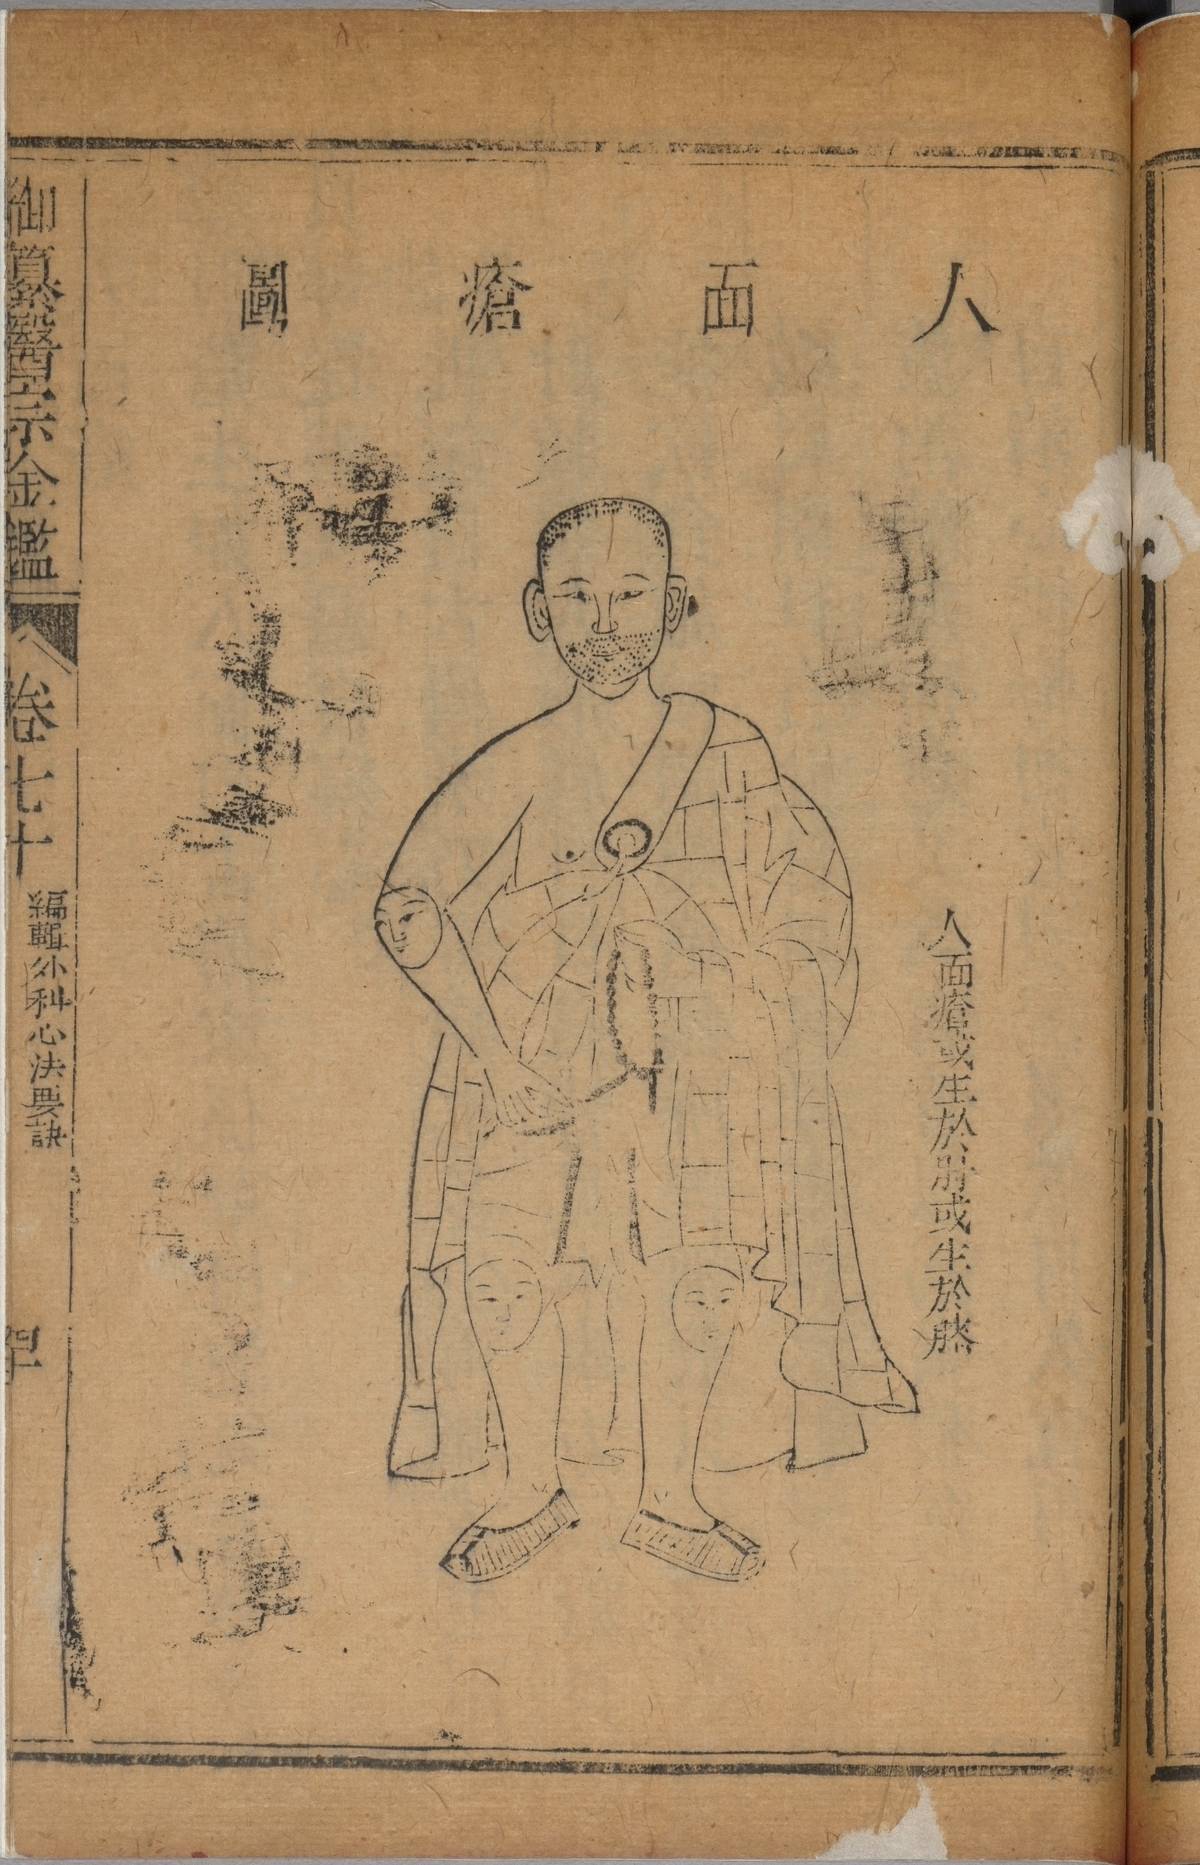 人面瘡圖
人面瘡或生於肘或生於膝
御纂醫宗金鑑
卷七十
編輯外科心法要訣